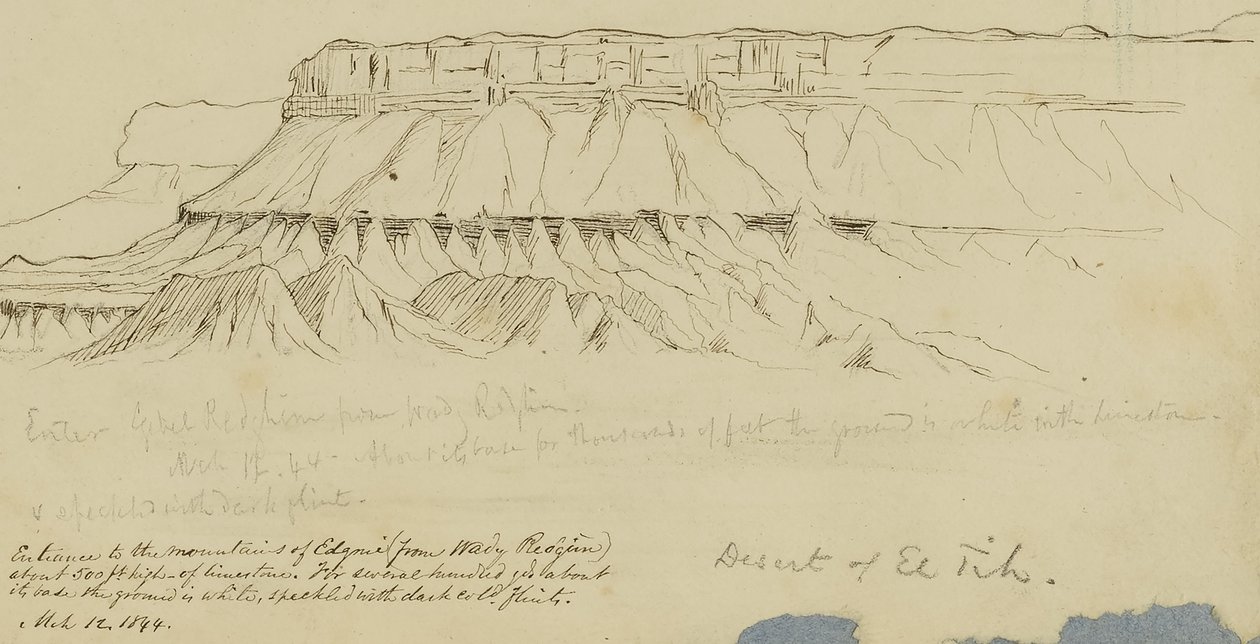 Enter Gebel Redghim from Wady
Mch 12. 44 - About its base for thousands of feet the ground is white with limestone -
& speckled with dark flint.
Entrance to the mountains of Edgmé (from Wady Redgim)
about 500 ft high - of limestone. For several hundred yds about
its base the ground is white, speckled with dark cold. flints.
Mch 12. 1844.
Desert of El Tih.